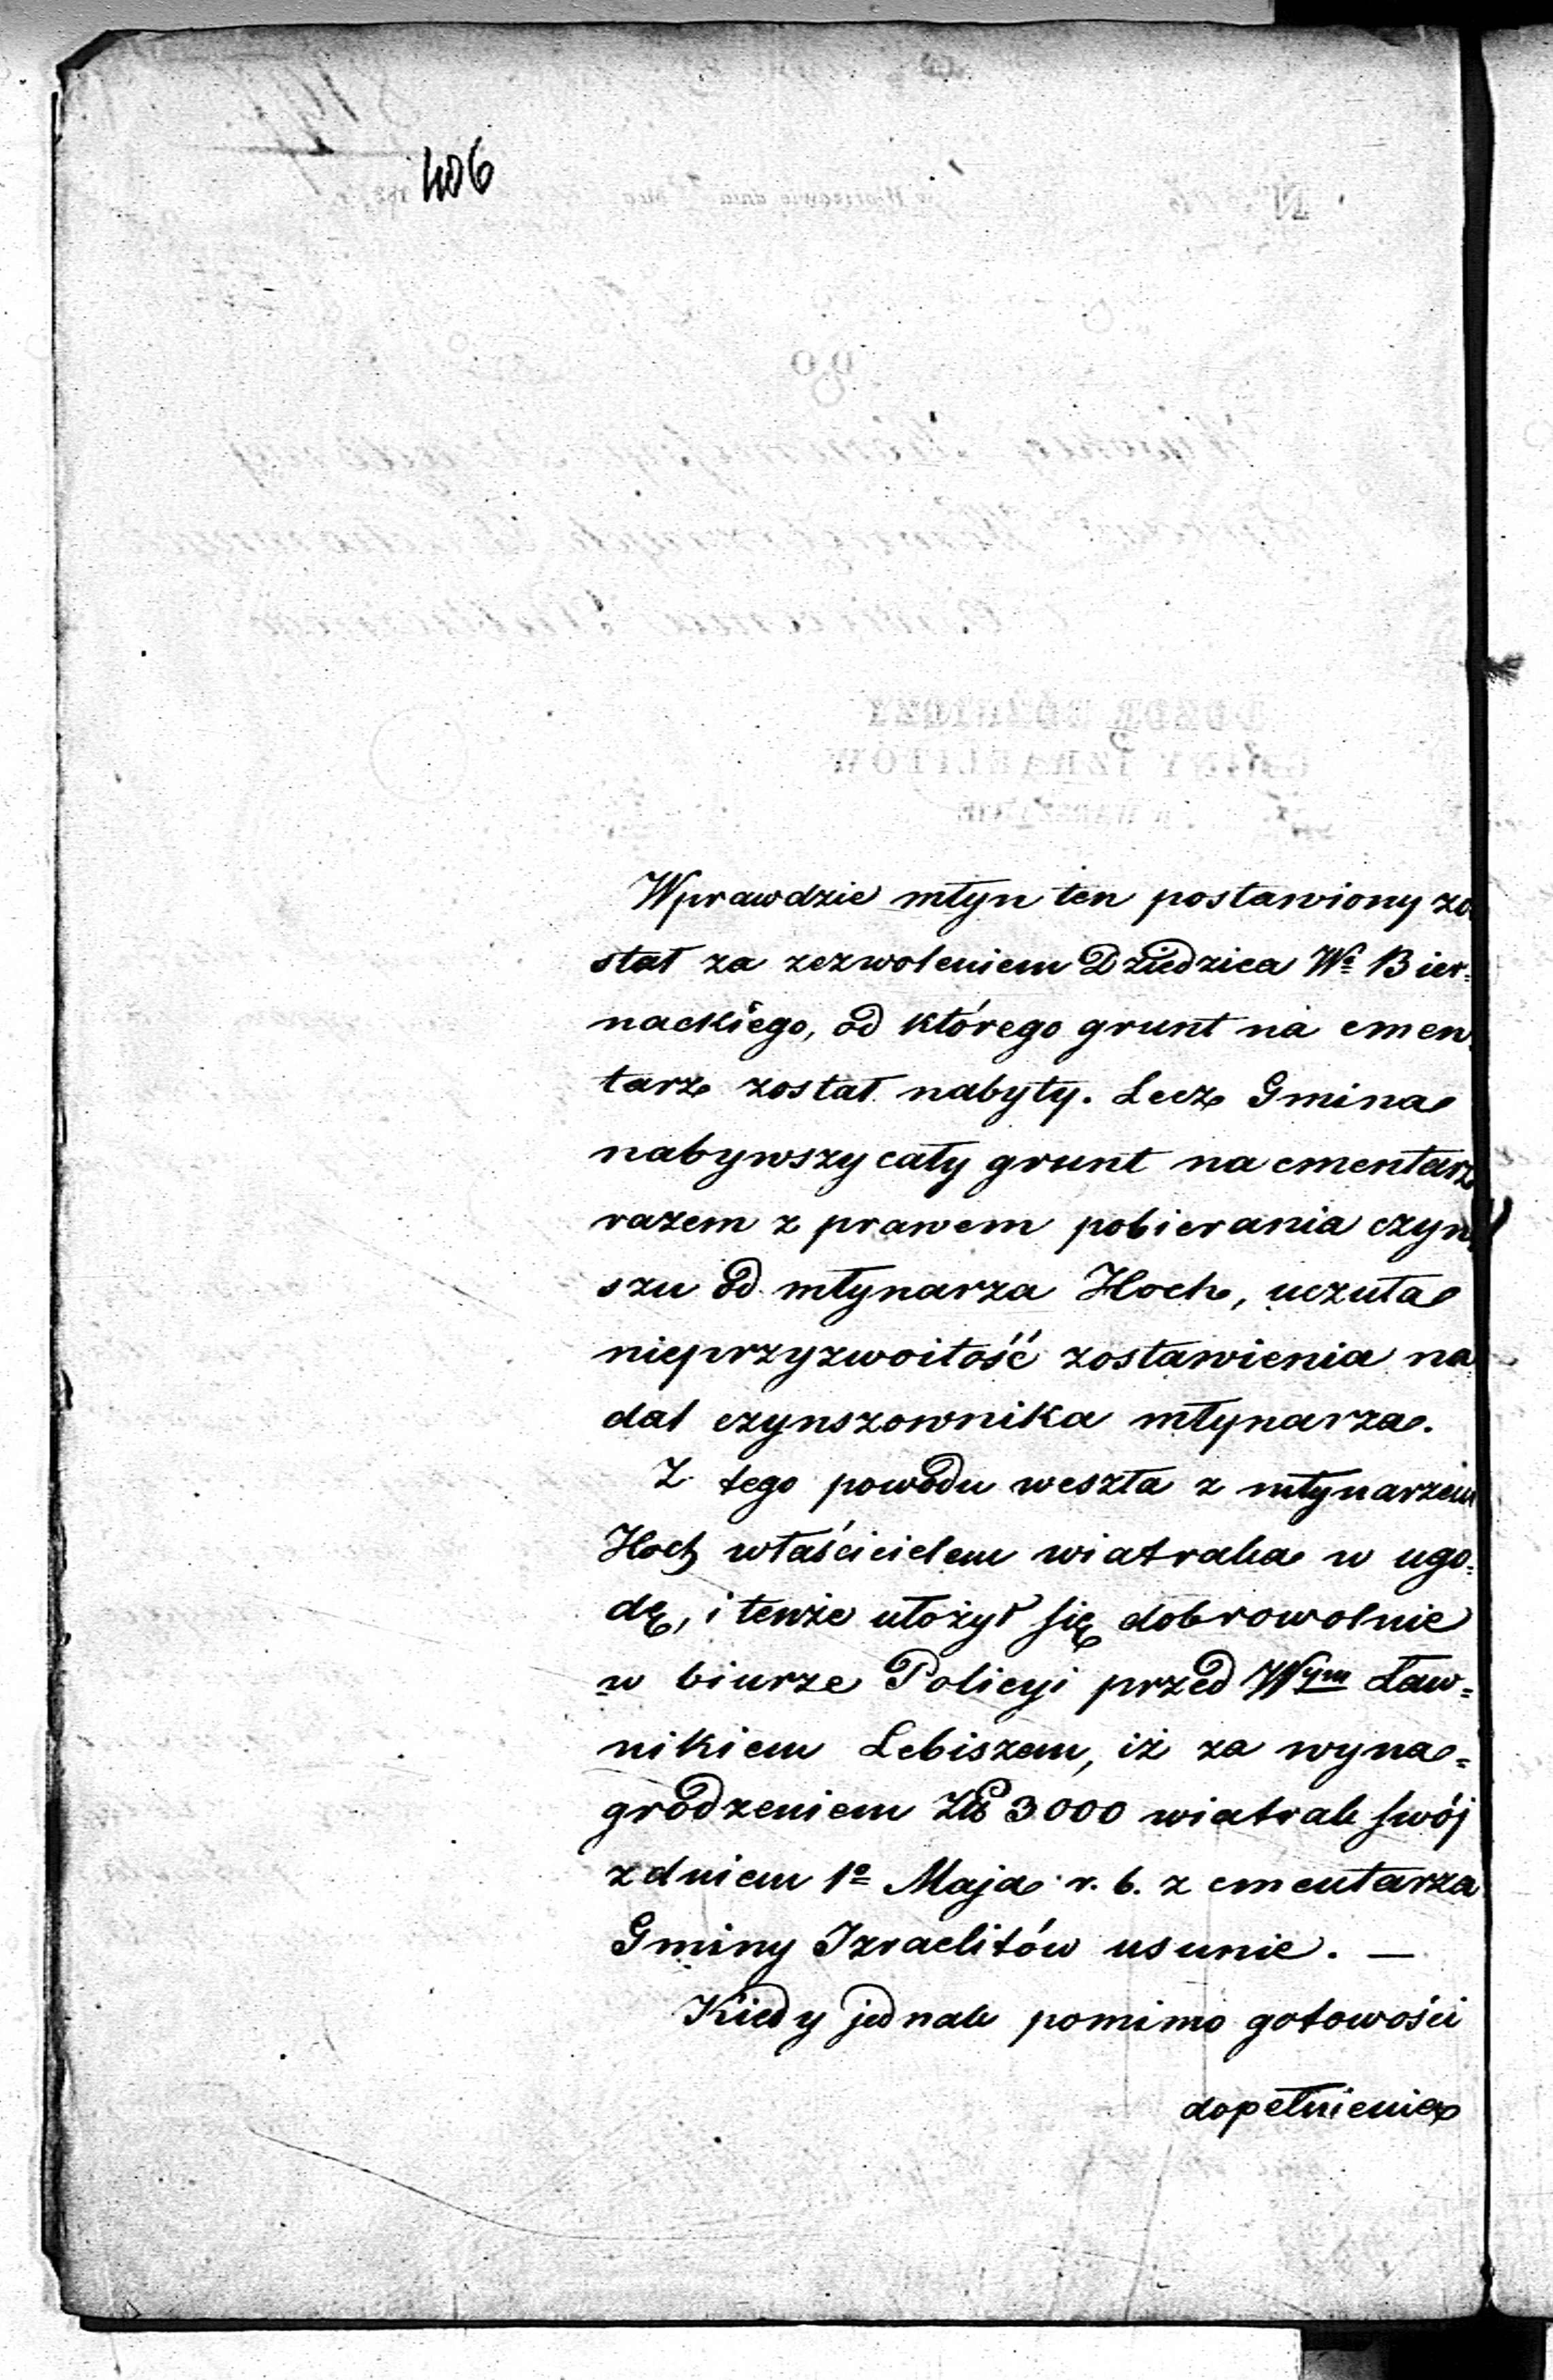 406
Wprawdzie młyn ten postawiony zo
stał za zezwoleniem Dziedzica Wº Bier=
nackiego, od którego grunt na cmen=
tarz został nabyty. Lecz Gmina
nabywszy cały grunt na cmentarz
razem z prawem pobierania czyn
szu od młynarza Hoch, uczuła
nieprzyzwoitość zostawienia na
dal czynszownika młynarza.
Z tego powodu weszła z młynarzem
Hoch właścicielem wiatraka w ugo=
dę, i tenże ułożył się dobrowolnie
w biurze Policyi przed Wym Ław=
nikiem Lebiszem, iż za wyna=
grodzeniem Złp 3000 wiatrak swój
z dniem 1º Maja r. b. z cmentarza
Gminy Izraelitów usunie. —
Kiedy jednak pomimo gotowości
dopełnienia